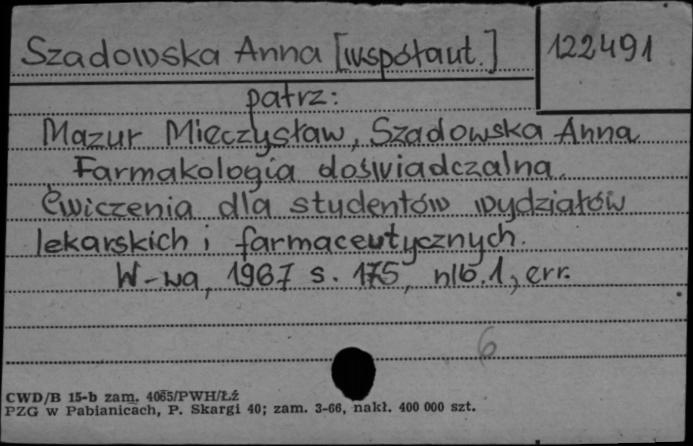 Szadowska Anna [współaut.]
122491
patrz:
Mazur Mieczysław, Szadowska Anna
Farmakologia doświadczalna.
Ćwiczenia dla studentów wydziałów
lekarskich i farmaceutycznych.
W-wa, 1967 s. 175, nlb. 1, err.
6
CWD/B 15-b zam. 4065/PWH/Łź
PZG w Pabianicach, P. Skargi 40; zam. 3-66, nakł. 400 000 szt.